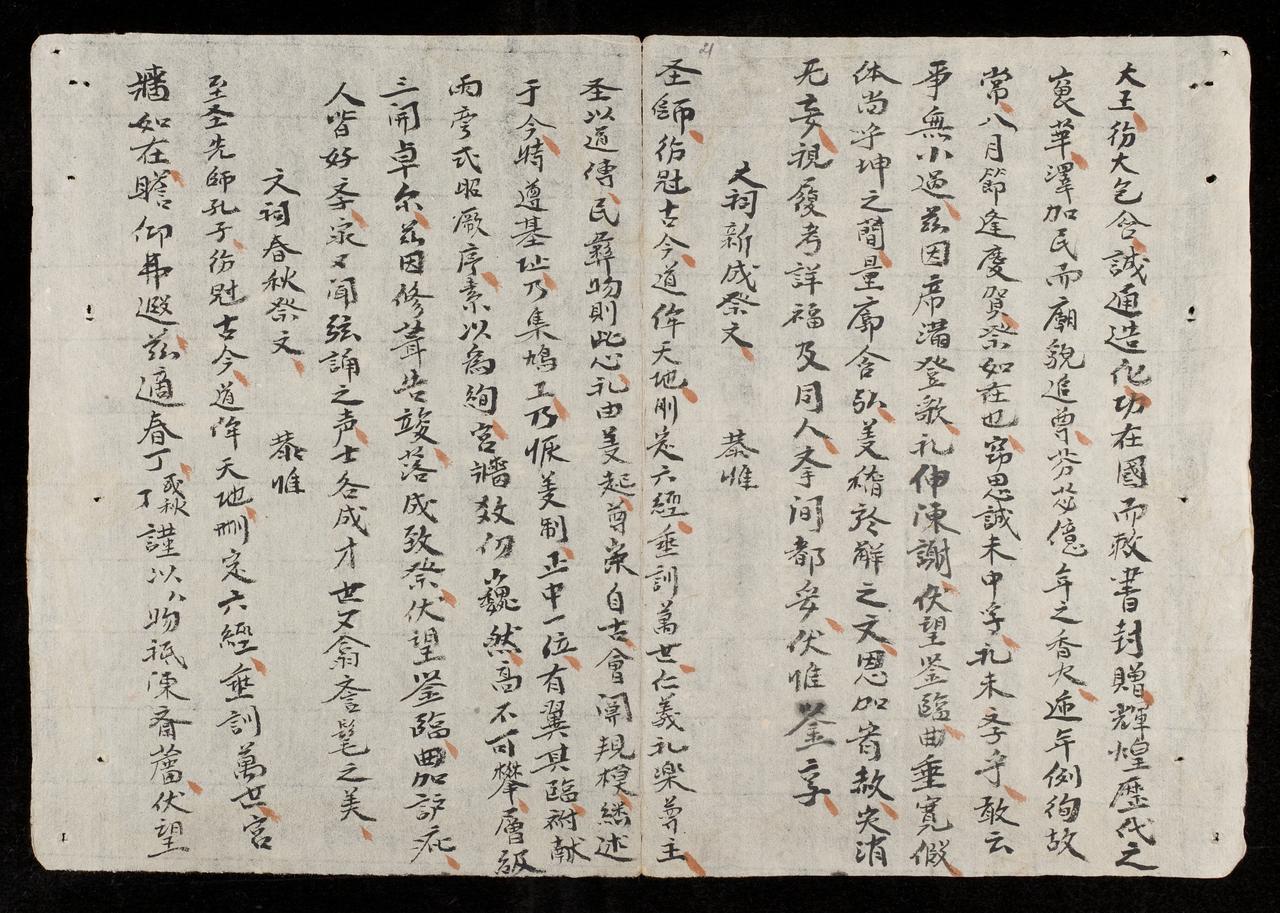 21
大王彷大包含誠通造化功在國而敕書封贈輝煌歷代之
裏華澤加民而廟貌追尊芬苾億年之香火迊年例徇故
常八月節逢慶賀祭如在也窃思誠未中孚礼未孝乎敢云
事無小過兹因席满登歌礼伸陳謝伏望鉴臨曲垂寬假
体尚乎坤之蕳量廓含弘美稽於解之文恩加宥赦灾消
无妄視履考詳福及同人孝间都妥伏惟鉴享
文祠新成祭文 恭惟
圣師彷冠古今道侔天地刪定六經垂訓萬世仁義礼樂尊王
圣以道傳民彝物則此心礼由義起尊崇自古會開規模繕述
于今時遵基址乃集鳩工乃恢美制正中一位有翼其臨祔献
兩旁式昭厥序素以為絢宮墻数仞巍然高不可攀層級
三開卓尔兹因修葺告竣落成致祭伏望鉴臨毋加訝疵
人皆好圣家又闻弦誦之声士各成才世又翕誉髦之美
文祠春秋祭文 恭惟
至圣先師孔子彷冠古今道侔天地刪定六經垂訓萬世宮
墻如在瞻仰弗遐兹適春丁或秋丁謹以物祗陳齋薦伏望